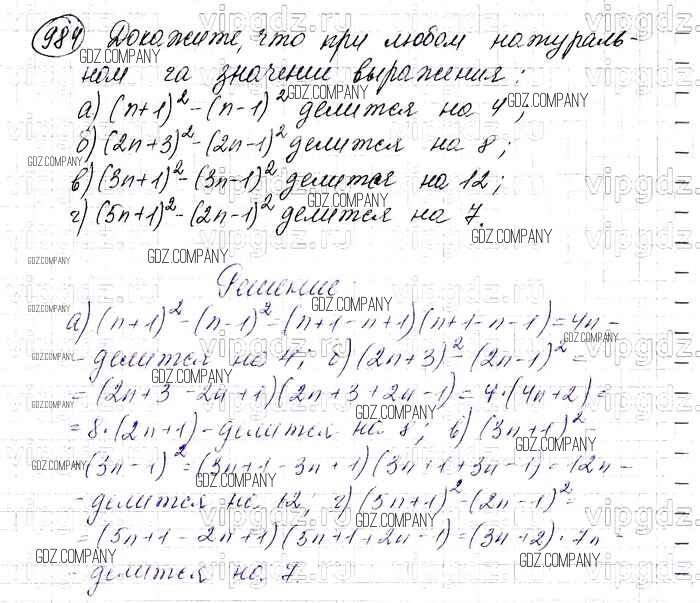 984 Докажите, что при любом натураль-
ном га значении выражения:
а) (n+1)² - (n-1)² делится на 4;
б) (2n+3)² - (2n-1)² делится на 8;
в) (3n+1)² - (3n-1)² делится на 12;
г) (5n+1)² - (2n-1)² делится на 7.
Решение
а) (n+1)² - (n-1)² = (n+1-n+1)(n+1-n-1) = 4n -
- делится на 4; б) (2n+3)² - (2n-1)² =
= (2n+3-2n+1)(2n+3+2n-1) = 4·(4n+2) =
= 8·(2n+1) - делится на 8; в) (3n+1)² -
- (3n-1)² = (3n+1-3n+1)(3n+1+3n-1) = 12n -
- делится на 12; г) (5n+1)² - (2n-1)² =
= (5n+1-2n+1)(3n+1+2n-1) = (3n+2)·7n -
- делится на 7.